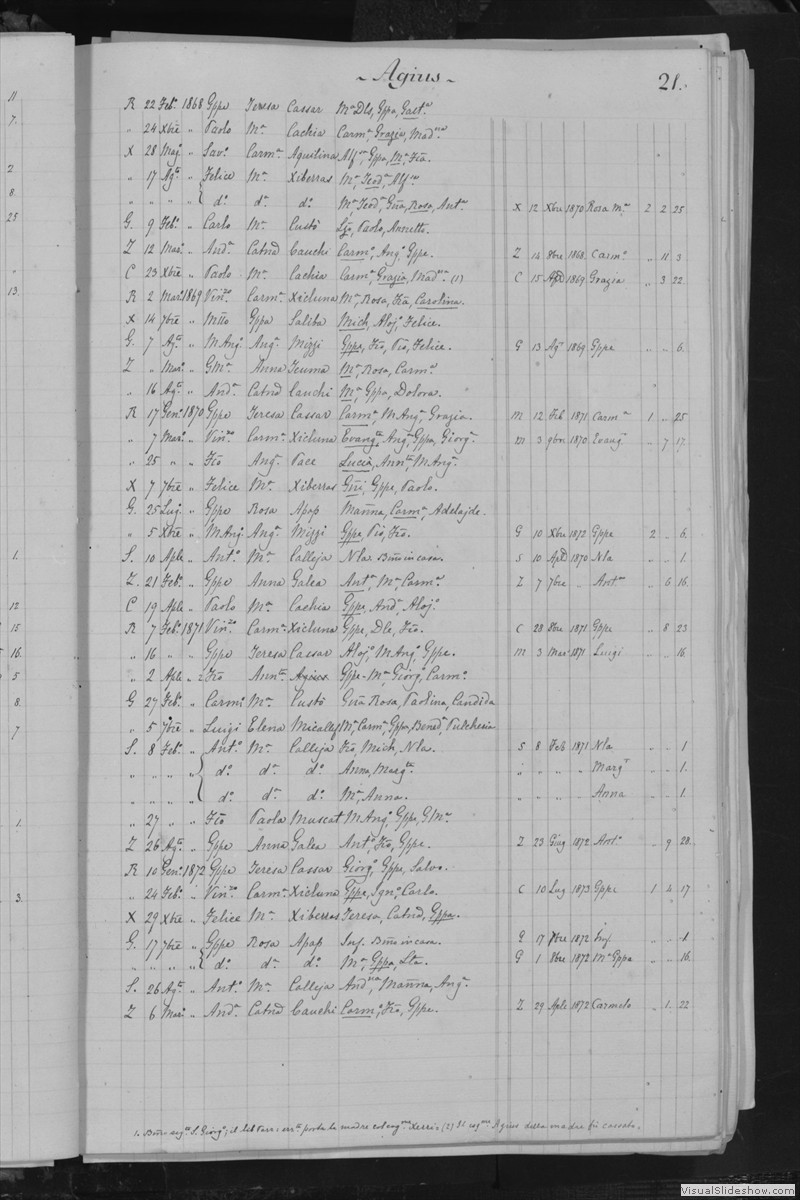 11
7.
2
8.
25
"
13.
1.
12
15
16.
5
8.
7
1.
3.
~ Agius ~
21.
R 22 Feb.º 1868 Gppe Teresa Cassar Mª Dls, Gppa, Gaetª
" 24 Xbre " Paolo Mª Cachia Carmª Grazia, Madna
X 28 Magº " Savº Carmª Aquilina Alfna, Gppa, Mª Fca.
" 17 Agº " Felice Mª Xiberras Mª, Teodª, Alfna
" " " " dº. dª. dº. Mª, Teodª, Gna, Rosa, Antª X 12 Xbre 1870 Rosa Mª 2 2 25
G. 9 Febº " Carlo Mª Custò Lza, Paola, Annetta.
Z 12 Marº " Andª Catnd Cauchi Carmº, Angº Gppe. Z 14 8bre 1868. Carmº " 11 3
C 23 Xbre " Paolo Mª Cachia Carmª, Grazia, Madna. (1) C 15 Apl 1869 Grazia " 3 22
R 2 Marº 1869 Vinzo Carmª Xicluna Mª, Rosa, Fca, Carolina.
X 14 7bre " Mtto Gppa Saliba Mich, Alojº, Felice.
G. 7 Agº " M Angº Angª Mizzi Gppa, Fco, Pio, Felice. G 13 Agº 1869 Gppa " " 6.
Z " Marº " GMª Anna Teuma Mª, Rosa, Carmª
" 16 Agº " Andª Catnd Cauchi Mª, Gppa, Dolora.
R 17 Genº 1870 Gppe Teresa Cassar Carmª, M Angª, Grazia. M 12 Feb 1871 Carmª 1 " 25
" 7 Marº " Vinzo Carmª Xicluna Evangta, Angª, Gppa, Giorgª M 3 9bre 1870 Evangª " 7 17.
" 25 " " Fco Angª Pace Lucia, Annta, M Angª.
X 7 7bre " Felice Mª Xiberras Gni, Gppe, Paolo.
G. 25 Lugº " Gppe Rosa Apap Manna, Carmª, Adelajde.
" 5 Xbre " M Angº Angª Mizzi Gppe, Pio, Fco. G 10 Xbre 1872 Gppe 2 " 6.
S. 10 Aple " Antº Mª Calleja Nla Bnno in casa. S 10 Apl 1870 Nla " " 1.
Z. 21 Febº " Gppe Anna Galea Antª, Mª, Carmª Z 7 7bre " Antª " 6 16.
C 19 Aple " Paolo Mª Cachia Gppe, Andª, Alojº
R 7 Febº 1871 Vinzo Carmª Xicluna Gppe, Dle, Fco. C 28 8bre 1871 Gppe " 8 23
" 16 " " Gppe Teresa Cassar Alojº, M Angº, Gppe. M 3 Marº 1871 Luigi " " 16
" 2 Aple " 2 Fco Annta Agius Gppe Mª, Giorgº, Carmº
G 27 Febº " Carmº Mª Custò Gna Rosa, Paolina, Candida
" 5 7bre " Luigi Elena Micallef Mª, Carmª, Gppa, Benedª, Pulcheria
S. 8 Febº " Antº Mª Calleja Fco, Mich, Nla. S 8 Feb 1871 Nla " " 1
" " " " dº. dª. dº. Anna, Margta. " " " " Margª " " 1.
" " " " dº. dª. dº. Mª, Anna. " " " " Anna " " 1.
" 27 " " Fco Paola Muscat M Angª, Gppa, GMª
Z 26 Agº " Gppe Anna Galea Antº, Fco, Gppe. Z 23 Giug 1872 Antº " 9 28.
R 10 Genº 1872 Gppe Teresa Cassar Giorgº, Gppe, Salvo.
" 24 Febº " Vinzo Carmª Xicluna Gppe, Ignº, Carlo. C 10 Lug 1873 Gppe 1 4 17
X 29 Xbre " Felice Mª Xiberras Teresa, Catnd, Gppa.
G. 17 7bre " Gppe Rosa Apap Inf. Bnno in casa. G 17 7bre 1872 Inf " " 1
" " " " dº. dª. dº. Mª, Gppa, Lta. G 1 8bre 1872 Mª Gppa " " 16.
S. 26 Agº " Antº Mª Calleja Andna, Manna, Angª.
Z 6 Marº " Andª Catnd Cauchi Carmº, Fco, Gppe. Z 29 Aple 1872 Carmelo " 1. 22
della madre fu cassato.
VisualSlideshow.com